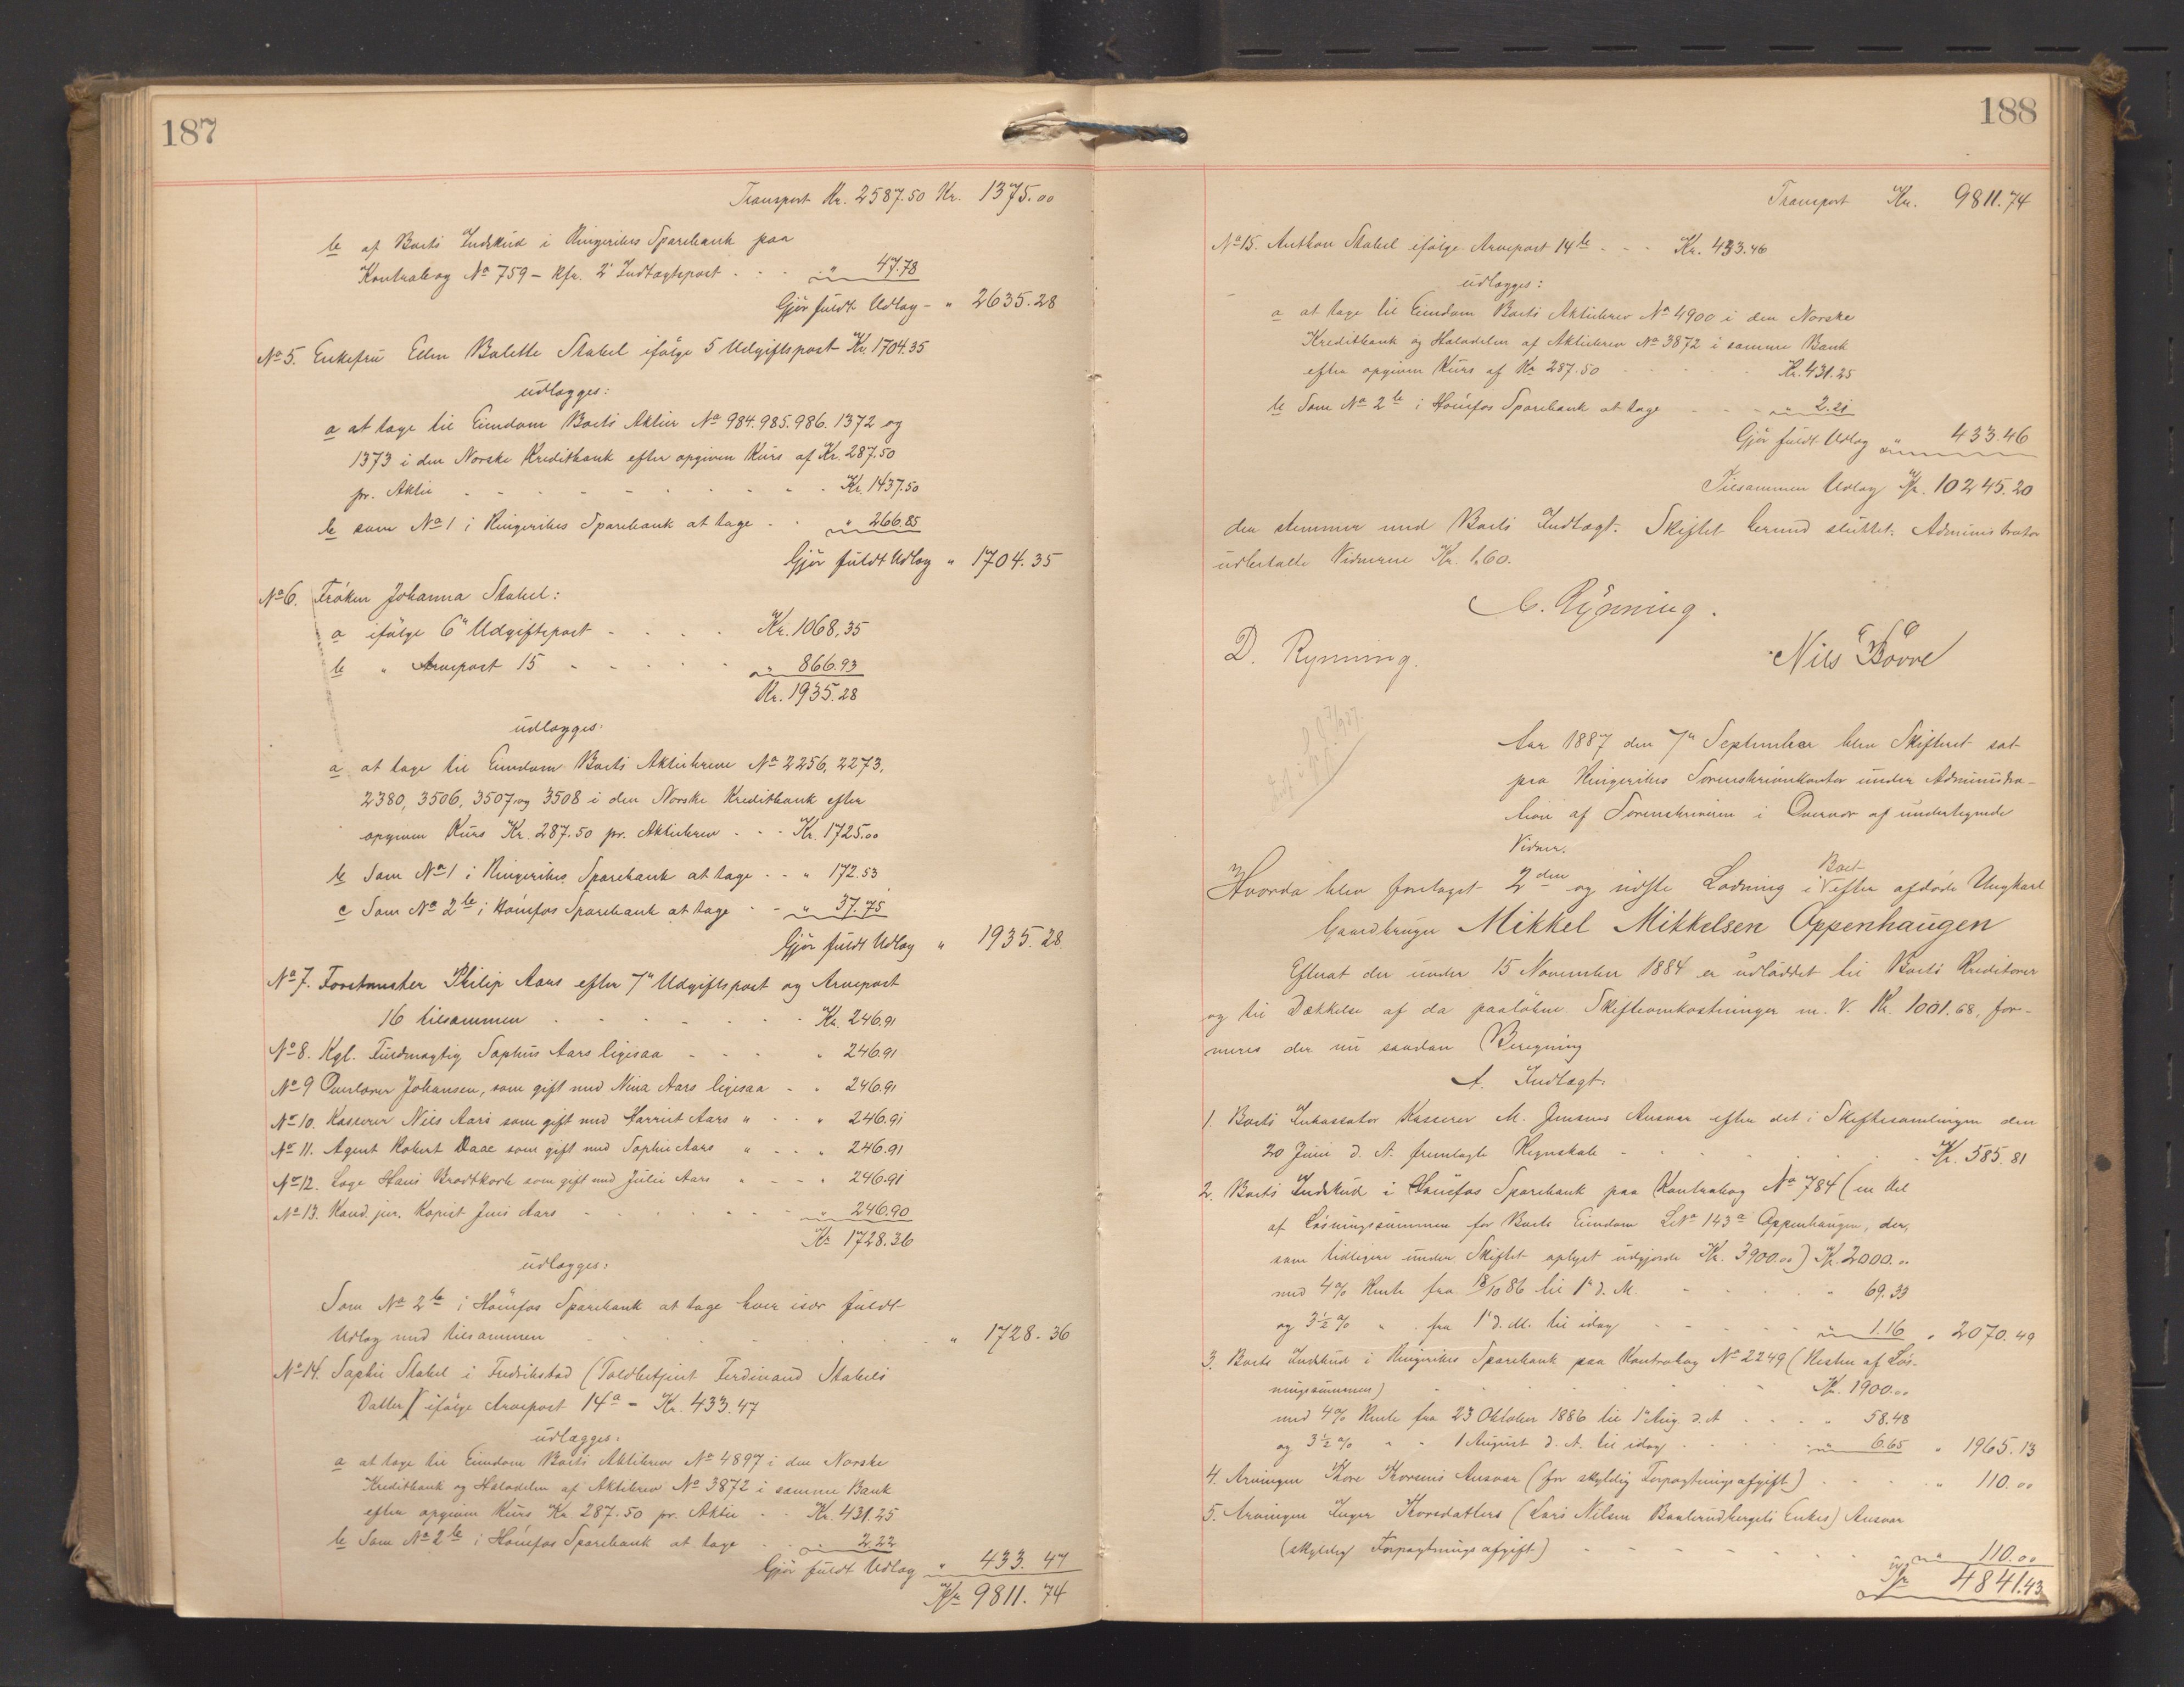 187
Transport Kr. 2587.50 Kr. 1375.00
b af Boets Indskud i Ringerikes Sparebank paa
Kontrabog No 759 - Kfr. 2' Indtægtspost . . . " 47.78
Gjør fuldt Udlæg - " 2635.28
No 5. Enkefru Ellen Bolette Stabel ifølge 5 Udgiftspost Kr. 1704.35
udlægges:
a at tage til Eiendom Boets Aktier No 984. 985. 986. 1372 og
1373 i den Norske Kreditbank efter opgiven Kurs af Kr. 287.50
pr. Aktie - - - - - - - Kr. 1437.50
b som No 1 i Ringerikes Sparebank at tage . . " 266.85
Gjør fuldt Udlæg " 1704.35
No 6. Frøken Johanna Stabel:
a ifølge 6" Udgiftspost - . . . Kr. 1068.35
b " Arvepost 15 - - - - - " 866.93
Kr. 1935.28
udlægges:
a at tage til Eiendom Boets Aktiebreve No 2256, 2273,
2380, 3506, 3507 og 3508 i den Norske Kreditbank efter
opgiven Kurs Kr. 287.50 pr. Aktiebrev - - - Kr. 1725.00
b Som No 1 i Ringerikes Sparebank at tage - - " 172.53
c Som No 2 b i Hønefos Sparebank at tage - - " 37.75
Gjør fuldt Udlæg " 1935.28
No 7. Forstmester Philip Aars efter 7" Udgiftspost og Arvepost
16 tilsammen - - - - - - Kr. 246.91
No 8. Kgl. Fuldmægtig Sophus Aars ligesaa - - - " 246.91
No 9 Overlærer Johansen, som gift med Nina Aars ligesaa - " 246.91
No 10. Kasserer Niels Aars som gift med Harriet Aars " - - " 246.91
No 11. Agent Robert Daae som gift med Sophie Aars " - - " 246.91
No 12. Læge Hans Brodtkorb som gift med Julie Aars " - - " 246.91
No 13. Kand. jur. Kopist Jens Aars - - - - - " 246.90
Kr 1728.36
udlægges:
Som No 2 b i Hønefos Sparebank at tage hver især fuldt
Udlæg med tilsammen - . . . . . . " 1728.36
No 14. Sophie Stabel i Fredrikstad (Toldbetjent Ferdinand Stabels
Datter) ifølge Arvepost 14 a - Kr. 433.47
udlægges:
a at tage til Eiendom Boets Aktiebrev No 4897 i den Norske
Kreditbank og Halvdelen af Aktiebrev No 3872 i samme Bank
efter opgiven Kurs Kr. 287.50 pr. Aktie - - Kr. 431.25
b Som No 2 b i Hønefos Sparebank at tage - - " 2.22
Gjør fuldt Udlæg " 433.47
Kr 9811.74
188
Transport Kr. 9811.74
No 15. Anthon Stabel ifølge Arvepost 14 b - - - Kr. 433.46
udlægges:
a at tage til Eiendom Boets Aktiebrev No 4900 i den Norske
Kreditbank og Halvdelen af Aktiebrev No 3872 i samme Bank
efter opgiven Kurs af Kr 287.50 - - - - Kr. 431.25
b Som No 2 b i Hønefos Sparebank at tage - - - " 2.21
Gjør fuldt Udlæg " 433.46
Tilsammen Udlæg Kr. 10245.20
der stemmer med Boets Indtægt. Skiftet hermed sluttet. Administrator
udbetalte Vidnerne Kr. 1.60.
C. Rynning.
D. Rynning. Nils Børve
Aar 1887 den 7" September blev Skifteret sat
paa Ringerikes Sorenskriverkontor under Administra-
tion af Sorenskriveren i Overvær af undertegnede
Vidner.
Hvorda blev foretaget 2den og sidste Lodning i Boet efter afdøde Ungkarl
Gaardbruger Mikkel Mikkelsen Oppenhaugen
Efterat der under 15 November 1884 er udloddet til Boets Kreditorer
og til Dækkelse af da paaløbne Skifteomkostninger m. V. Kr. 1001.68, for-
meres der nu saadan Beregning
A. Indtægt.
1. Boets Inkassator Kasserer M. Jensens Ansvar efter det i Skiftesamlingen den
20 Juni d. A. fremlagte Regnskab - - - - - Kr. 585.81
2. Boets Indskud i Hønefos Sparebank paa Kontrabog No 784 (en Del
af Løsningssummen for Boets Eiendom LNo 143 a Oppenhaugen, der,
som tidligere under Skiftet oplyst udgjorde Kr. 3900.00) Kr. 2000.00
med 4 % Rente fra 18/10 86 til 1" d. M. - - - " 69.33
og 3 1/2 % " fra 1" d. M. til idag - - - - " 1.16 " 2070.49
3. Boets Indskud i Ringerikes Sparebank paa Kontrabog No 2249 (Resten af Løs-
ningssummen) - - - - - - Kr. 1900.00
med 4 % Rente fra 23 Oktober 1886 til 1" Aug. d. A. - - " 58.48
og 3 1/2 % " " 1 August d. A. til idag - - - " 6.65 " 1965.13
4. Arvingen Thore Thoresens Ansvar (for skyldig Forpagtningsafgift) - - - " 110.00
5. Arvingen Inger Thoresdatters (Lars Nilsen Enkes) Ansvar
(skyldig Forpagtningsafgift) - - - - - " 110.00
Kr 4841.43